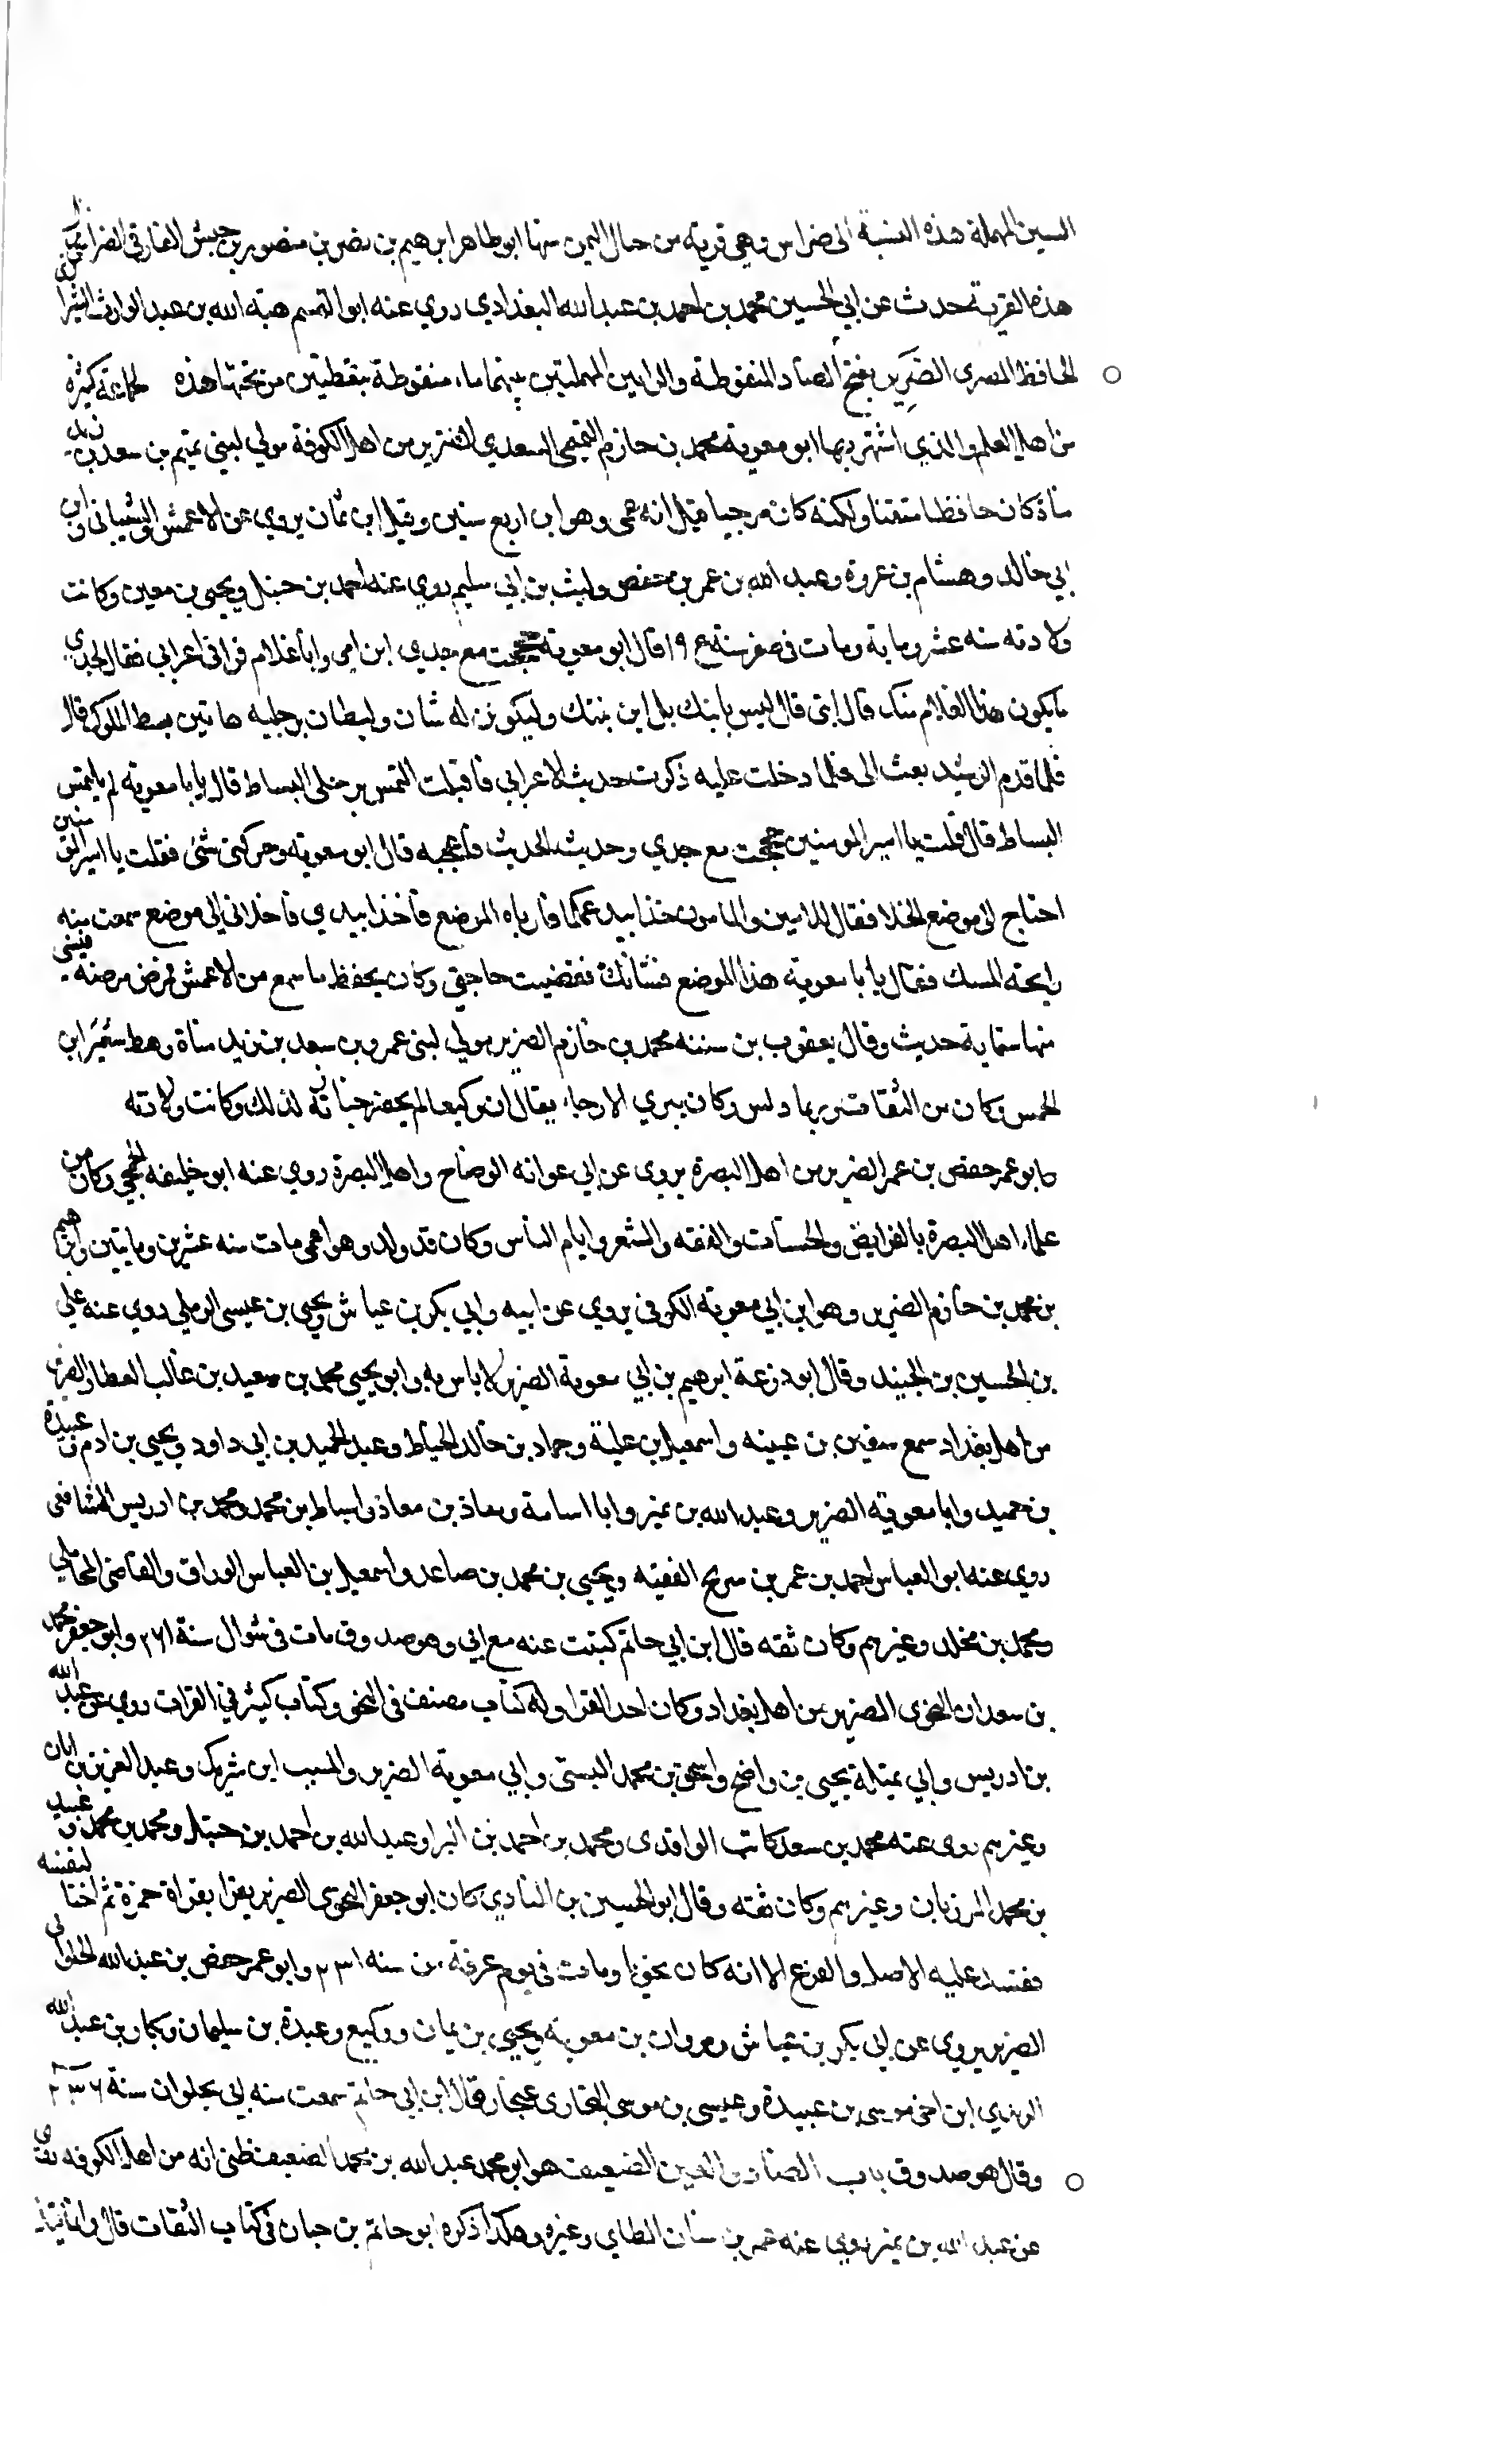 السين المهملة هذه النسبة الى ضراس وهي قرية من جبال اليمن منها ابو طاهر ابرهيم بن نصر بن منصور بن حبش الفارقي الضراسي
هذه القرية حدث عن ابي الحسين محمد بن احمد بن عبد الله البغدادي روي عنه ابو القسم هبة الله بن عبد الوارث الشيرازي
الحافظ المصرى الضَرير بفتح الضاد المنقوطة والرايين المهملتين بينهما ياء منقوطة بنقطتين من تحتها هذه لجماعة كثيرة
من اهل العلم والذي اشتهر بها ابو معوية محمد بن خازم التميمي السعدي الضرير من اهل الكوفة مولي لبني تميم بن سعد بن زيد
مناة كان حافظا متقنا ولكنه كان مرجيا قيل انه عمى وهو ابن اربع سنين وقيل ابن ثمان يروي عن الاعمش والشيبانى وابن
ابي خالد وهشام بن عروة وعبيد الله بن عمر بن حفص وليث بن ابي سليم روي عنه احمد بن حنبل ويحيى بن معين وكانت
ولادته سنه عشر وماية ومات فى صفر سنة ١٩٤ قال ابو معوية حججت مع جدي ابن امى وانا غلام فراني اعرابي فقال لجدي
ما يكون هذا الغلام منك قال ابنى قال ليس بابنك بل ابن بنتك وليكونن له شان وليطان برجليه هاتين بسط الملوك قال
فلما قدم الرشيد بعث الى فلما دخلت عليه ذكرت حديث الاعرابي فاقبلت التمس برجلى البساط قال يا با معوية لم يلتمس
البساط قال قلت يا امير المومنين حججت مع جدي وحديث الحديث فاعجبه قال ابو معوية وحركنى شئ فقلت يا امير المومنين
احتاج الى موضع الخلا فقال للامين والمامون خذا بيد عمكما فارياه الموضع فاخذا بيدي فادخلاني الى موضع سمعت منه
رايحة المسك فقال يا با معوية هذا الموضع فشانك فقضيت حاجتى وكان يحفظ ما سمع من الاعمش فمرض مرضة فنسى
منها ستماية حديث وقال يعقوب بن شيبة محمد بن خازم الضرير مولي لبنى عمرو بن سعد بن زيد مناة رهط سُعَير ابن
الخمس وكان من الثقات وربما دلس وكان يري الارجاء يقال ان وكيعا لم يحضر جنازته لذلك وكانت ولادته
وابو عمر حفص بن عمر الضرير من اهل البصرة يروي عن ابي عوانه الوضاح واهل البصرة روي عنه ابو خليفه الجمحى وكان من
علماء اهل البصرة بالفرايض والحساب والفقه والشعر وايام الناس وكان قد ولد وهو اعمى مات سنه عشرين ومايتين وابرهيم
بن محمد بن خازم الضرير وهو ابن ابي معوية الكوفى يروي عن ابيه وابي بكر بن عياش ويحيى بن عيسى الرملى روي عنه على
بن الحسين بن الجنيد وقال ابو زرعة ابرهيم بن ابي معوية الضرير لا باس به وابو يحيى محمد بن سعيد بن غالب العطار الضرير
من اهل بغداد سمع سفين بن عيينه واسمعيل بن علية وحماد بن خالد الخياط وعبد الحميد بن ابي داود ويحيى بن ادم وعبيدة
بن حميد وابا معوية الضرير وعبد الله بن نمير وابا اسامة ومعاذ بن معاذ واسباط بن محمد ومحمد بن ادريس الشافعى
روي عنه ابو العباس احمد بن عمر بن سريج الفقيه ويحيى بن محمد بن صاعد واسمعيل بن العباس الوراق والقاضى المحاملي
ومحمد بن مخلد وغيرهم وكان ثقه قال ابن ابي حاتم كتبت عنه مع ابي وهو صدوق مات فى شوال سنة ٢٦١ وابو جعفر محمد
بن سعدان النحوى الضرير من اهل بغداد وكان احد القرا وله كتاب مصنف فى النحو وكتاب كبير في القراات روي عن عبد الله
بن ادريس وابي تميلة يحيى بن واضح واسحق بن محمد المسيبى وابي معوية الضرير والمسيب ابن شريك وعبد العزيز بن ابان
وغيرهم روى عنه محمد بن سعد كاتب الواقدى ومحمد بن احمد بن البرا وعبد الله بن احمد بن حنبل ومحمد بن محمد وعبيد
بن محمد المرزبان وغيرهم وكان ثقه وقال ابو الحسين بن المنادي كان ابو جعفر النحوى الضرير يقرا بقراة حمزة ثم اختار لنفسه
ففسد عليه الاصل والفرع الا انه كان نحويا ومات فى يوم عرفة من سنه ٢٣١ وابو عمر حفص بن عبد الله الحلوانى
الضرير يروي عن ابي بكر بن عياش ومروان بن معوية ويحيى بن يمان ووكيع وعبدة بن سليمان وبكار بن عبد الله
الربذي ابن اخى موسى بن عبيدة وعيسى بن موسى البخارى غنجار قال ابن ابي حاتم سمعت منه ابي بحلوان سنة ٢٣٦
وقال هو صدوق باب الضاد والعين الضعيف هو ابو محمد عبد الله بن محمد الضعيف ظنى انه من اهل الكوفه
عن عبد الله بن نمير روي عنه عمر بن سنان الطاي وغيره وهكذا ذكره ابو حاتم بن حبان فى كتاب الثقات قال وانما قيل